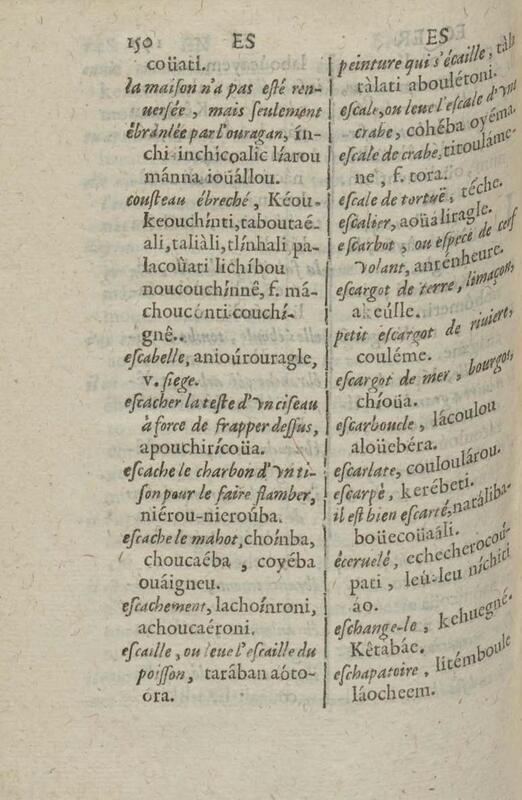 150 ES
coüati.
la maiſon n'a pas eſté ren-
uerſée, mais ſeulement
ébranlée par l'ouragan, ín-
chi-inchicoalic líarou
mánna ioüállou.
couſteau ébreché, Kéou-
keouchínti, taboutaé-
ali, taliàli, tlínhali pa-
lacoüati lichíbou
noucouchínnê, f. má-
chouconti couchí-
gnê.
eſcabelle, anioúrouragle,
v. ſiege.
eſcacher la teſte d'vn ciſeau
à force de frapper deſſus,
apouchirícoüa.
eſcache le charbon d'vn ti-
ſon pour le faire flamber,
niérou-nieroúba.
eſcache le mahot, choínba,
choucaéba, coyéba
ouáigneu.
eſcachement, lachoínroni,
achoucaéroni.
eſcaille, ou leue l'eſcaille du
poiſſon, tarában aóto-
ora.
ES
peinture qui s'écaille, tàla
tàlati aboulétoni.
eſcale, ou leue l'eſcale d'vn
crabe, cóhéba oyéma.
eſcale de crabe, titouláme-
ne, f. tora.
eſcale de tortuë, téche.
eſcalier, aoüáliragle.
eſcarbot, ou eſpece de cerf
volant, anténheure.
eſcargot de terre, limaçon,
akeúlle.
petit eſcargot de riuiere,
couléme.
eſcargot de mer, bourgot,
chíoüa.
eſcarboucle, lácoulou
aloüebéra.
eſcarlate, couloulárou.
eſcarpé, kerébeti.
il eſt bien eſcarté, natáliba-
boüecoüaáli.
éceruelé, echecherocoú-
pati, leú-leu níchiti
áo.
eſchange-le, kehuegné.
Kêtabáe.
eſchapatoire, litémboule
láocheem.